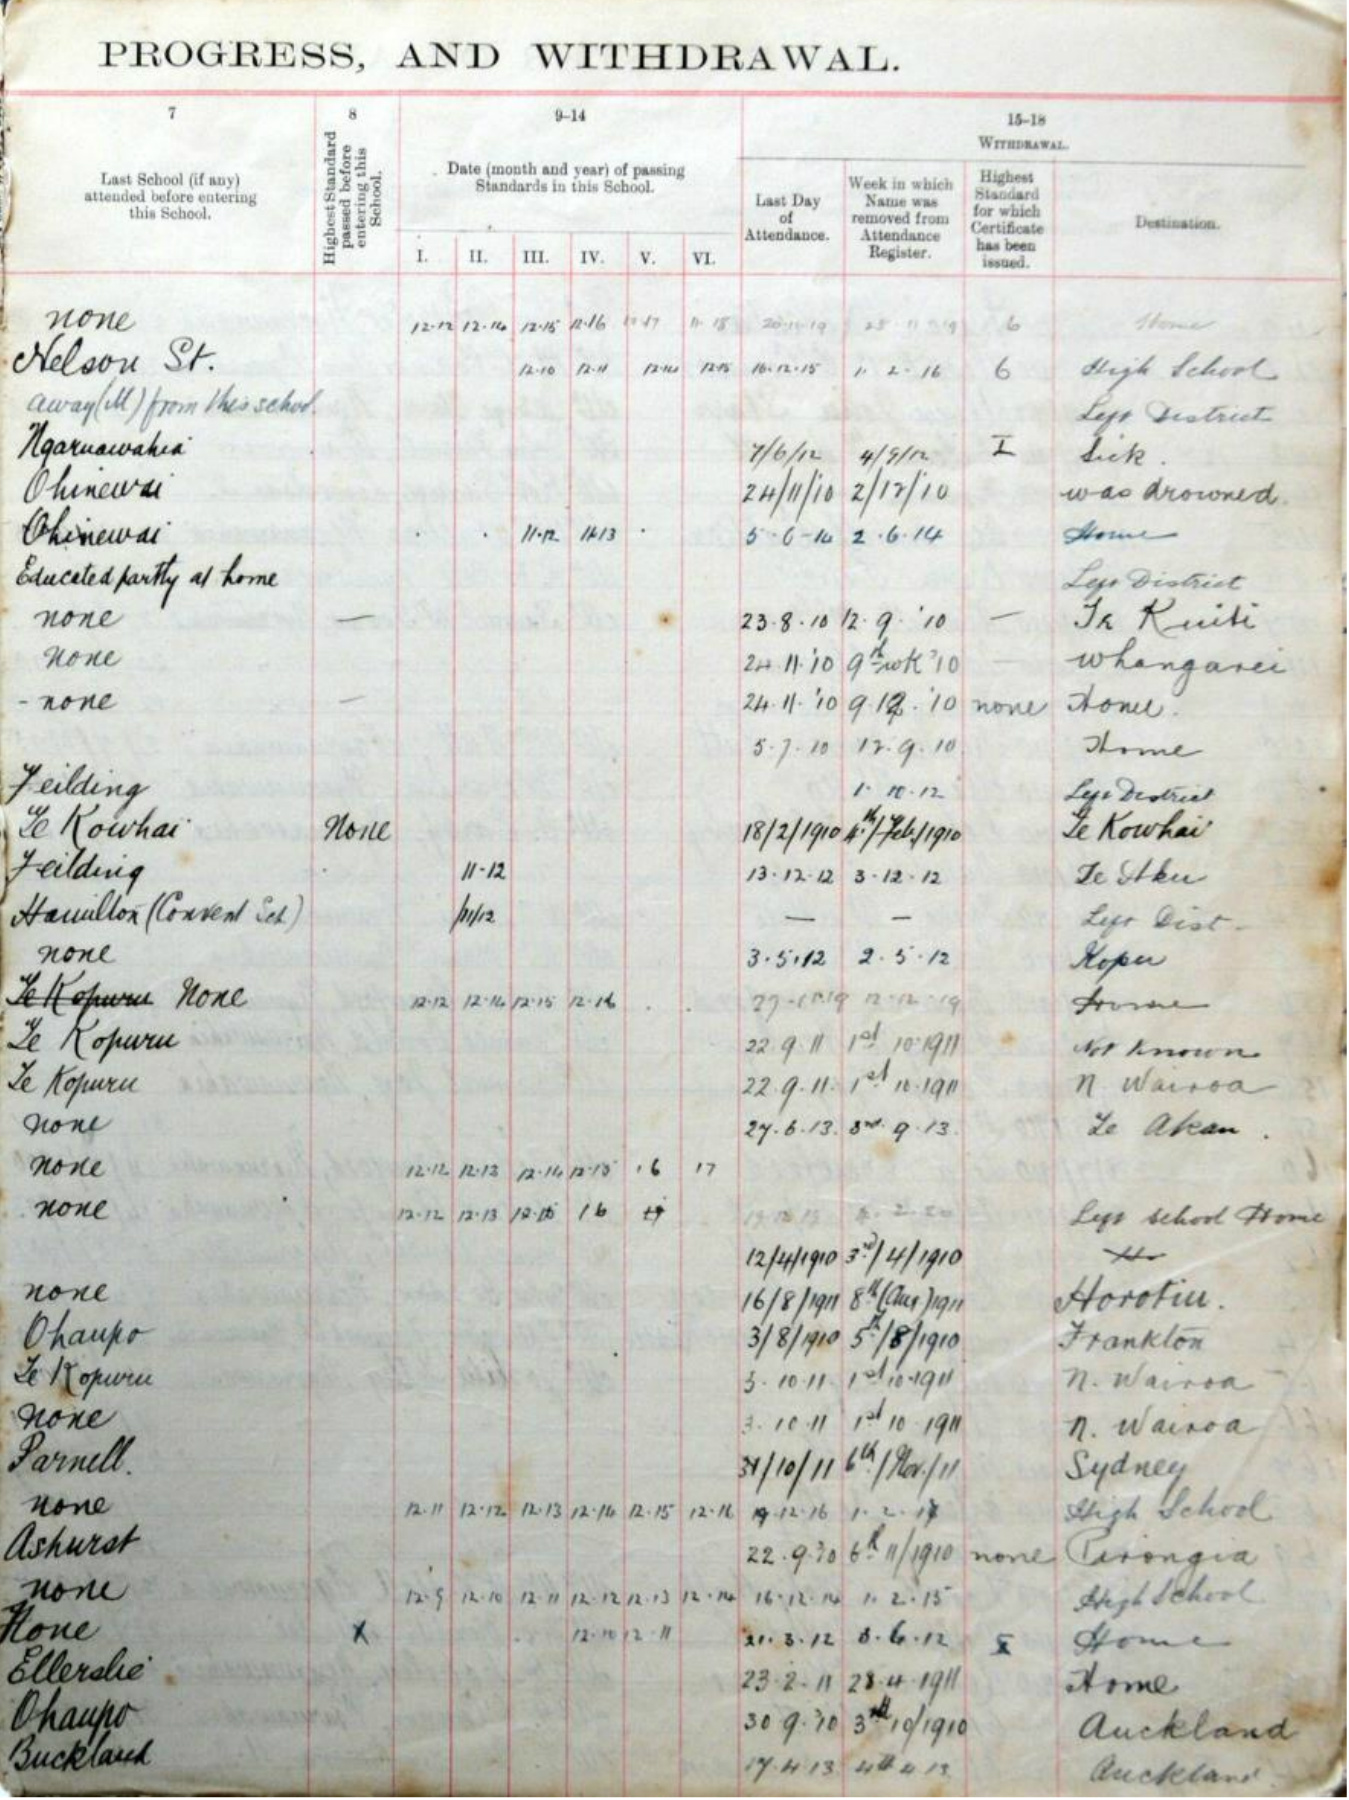 PROGRESS, AND WITHDRAWAL.
7 8 9–14 15–18
Last School (if any) attended before entering this School.
Highest Standard passed before entering this School.
Date (month and year) of passing Standards in this School.
I. II. III. IV. V. VI.
WITHDRAWAL.
Last Day of Attendance.
Week in which Name was removed from Attendance Register.
Highest Standard for which Certificate has been issued.
Destination.
none 12-12 12-14 12-15 12-16 6 Home
Nelson St. 12-10 12-11 12-14 12-15 16.12.15 1. 2. 16 6 High School
away (M) from this school. Left District
Ngaruawahia 7/6/12 4/9/12 I Sick.
Ohinewai 24/11/'10 2/12/'10 was drowned.
Ohinewai 11-12 11-13 5-6-14 2.6.14 Home
Educated partly at home Left District
none — 23.8.10 12.9.'10 — Te Kuiti
none 24.11.'10 9th wk '10 — Whangarei
- none — 24.11.'10 9.12.'10 none Home.
5.7.10 12.9.10 Home
Feilding 1. 10.12 Left District
Te Kowhai None 18/2/1910 4th/Feb/1910 Te Kowhai
Feilding 11-12 13.12.12 3.12.12 Te Aku
Hamilton (Convent Sch) 11/12 — — Left Dist-
none 3.5.12 2.5.12 Kopu
Te Kopuru None 12-12 12-14 12-15 12-16 12-12-19 Home
Te Kopuru 22.9.11 1st 10.1911 Not Known
Te Kopuru 22.9.11. 1st 10.1911 N. Wairoa
none 27.6.13. 3rd 9.13. Te Akau.
none 12-12 12-13 12-14 12-15 16 17
none 12-12 12-13 12-15 16 17 Left School Home
12/4/1910 3rd/4/1910
none 16/8/1911 8th (Aug) 1911 Horotiu.
Ohaupo 3/8/1910 5th/8/1910 Frankton
Te Kopuru 3.10.11 1st 10.1911 N. Wairoa
none 3.10.11 1st 10.1911 N. Wairoa
Parnell. 31/10/11 6th/Nov./11 Sydney
none 12-11 12-12 12-13 12-14 12-15 12-16 19.12.16 1.2.17 High School
Ashurst 22.9.'10 6th 11/1910 none Pirongia
none 12-9 12-10 12-11 12-12 12-13 12-14 16.12.14 1.2.15 High School
None X 12-10 12-11 21.3.12 3.6.12 Home
Ellerslie 23.2.11 28.4.1911 Home
Ohaupo 30.9.'10 3rd 10/1910 Auckland
Buckland 17.4.13 4th 4.13 Auckland.